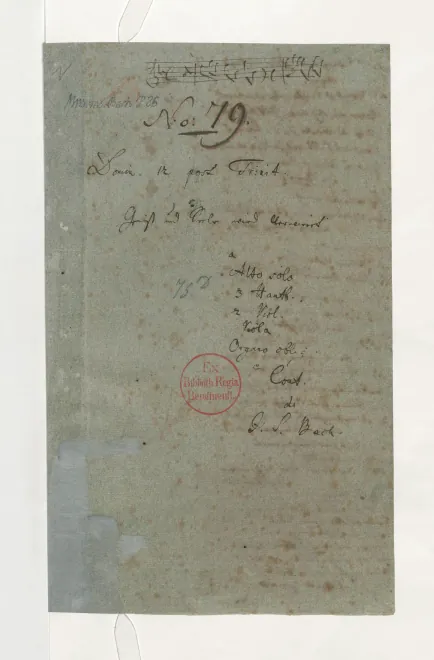 No: 79.
Domin. 12 post Trinit
Geist u Seele wird
a
Alto solo
3 Hautb.
2 Viol.
Viola
Organo obl.
Cont.
di
J. S. Bach.
75
Ex
Biblioth. Regia
Berolinensi.